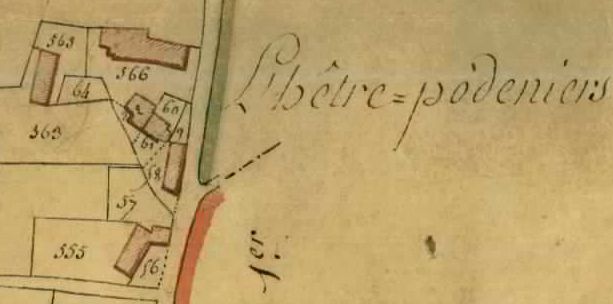 565
566
64
60
2
9
61
369
58
57
555
56
L'hêtre=pòdeniers
1er